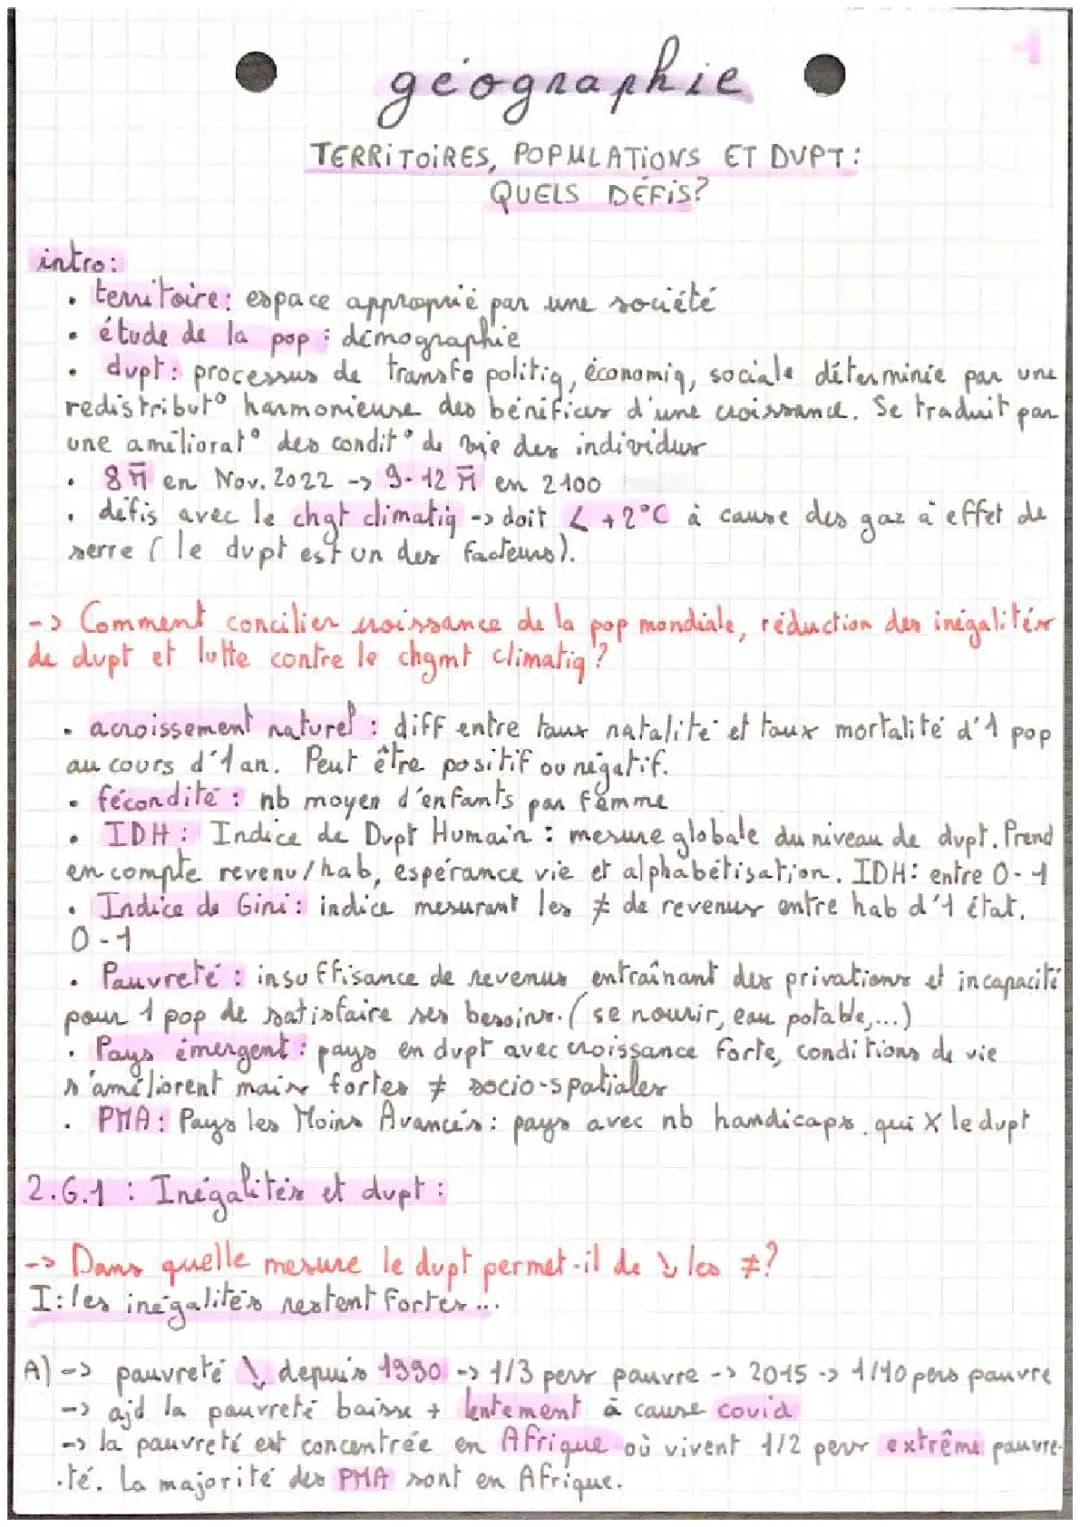 1
géographie
TERRITOIRES, POPULATIONS ET DVPT:
QUELS DÉFIS?
intro:
• territoire: espace approprié par une société
• étude de la pop : démographie
• dvpt: processus de transfo politiq, économiq, sociale déterminée par une
redistribut° harmonieuse des bénéfices d'une croissance. Se traduit par
une améliorat° des condit° de vie des individus
• 8 M̄ en Nov. 2022 -> 9-12 M̄ en 2100
• défis avec le chgt climatiq -> doit < +2°C à cause des gaz à effet de
serre (le dvpt est un des facteurs).
-> Comment concilier croissance de la pop mondiale, réduction des inégalités
de dvpt et lutte contre le chgmt climatiq?
• acroissement naturel : diff entre taux natalité et taux mortalité d'1 pop
au cours d'1 an. Peut être positif ou négatif.
• fécondité : nb moyen d'enfants par femme
• IDH : Indice de Dvpt Humain : mesure globale du niveau de dvpt. Prend
en compte revenu/hab, espérance vie et alphabétisation. IDH: entre 0-1
• Indice de Gini: indice mesurant les ≠ de revenus entre hab d'1 état.
0-1
• Pauvreté : insuffisance de revenus entraînant des privations et incapacité
pour 1 pop de satisfaire ses besoins. (se nourir, eau potable,...)
• Pays émergent : pays en dvpt avec croissance forte, conditions de vie
s'améliorent mais fortes ≠ socio-spatiales
• PMA: Pays les Moins Avancés: pays avec nb handicaps qui X le dvpt
2.G.1 : Inégalités et dvpt :
-> Dans quelle mesure le dvpt permet-il de ↘ les ≠?
I: les inégalités restent fortes...
A) -> pauvreté ↘ depuis 1990 -> 1/3 pers pauvre -> 2015 -> 1/10 pers pauvre
-> ajd la pauvreté baisse + lentement à cause covid
-> la pauvreté est concentrée en Afrique où vivent 1/2 pers extrême pauvre-
-té. La majorité des PMA sont en Afrique.